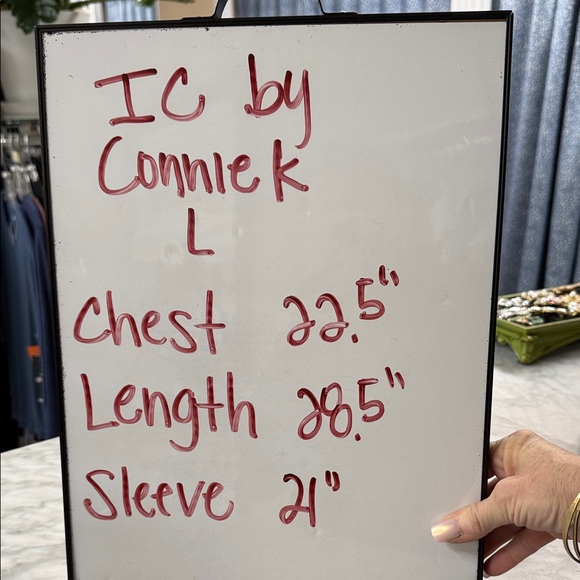 IC by
Connie K
L
Chest 22.5"
Length 28.5"
Sleeve 21"